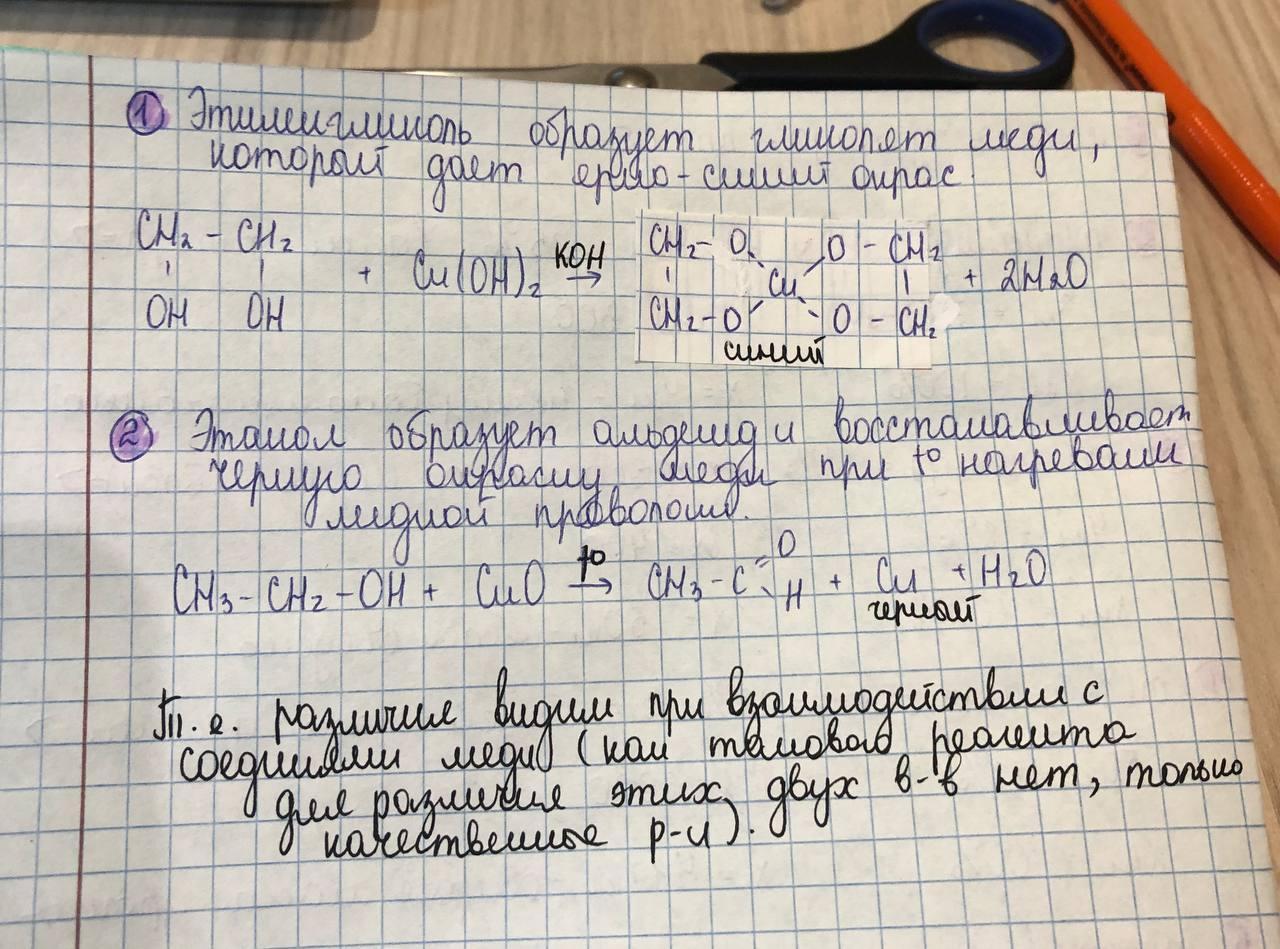 1 Этиленгликоль образует гликолят меди,
который дает ярко-синий окрас
CH₂ - CH₂
OH OH
+ Cu(OH)₂ KOH →
CH₂ - O O - CH₂
Cu
CH₂ - O O - CH₂
синий
+ 2H₂O
2 Этанол образует альдегид и восстанавливает
черную окраску меди при t° нагревании
медной проволоки.
CH₃ - CH₂ - OH + CuO t° → CH₃ - C = O H + Cu + H₂O
черный
Т.е. различия видим при взаимодействии с
соединиями меди (как такового реагента
для различия этих двух в-в нет, только
качественные р-и).